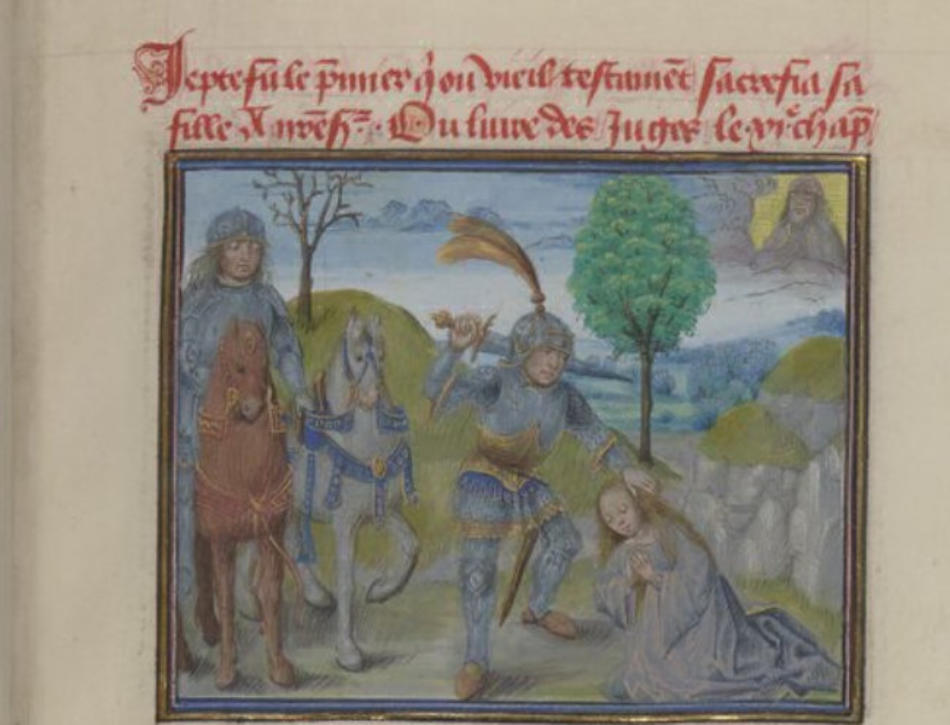 Jepte fu le p̄mier q̄ ou vieil testamēt sacrefia sa
fille A nr̄e Sr̄. Ou liure des Juges le .xi.e chap̄